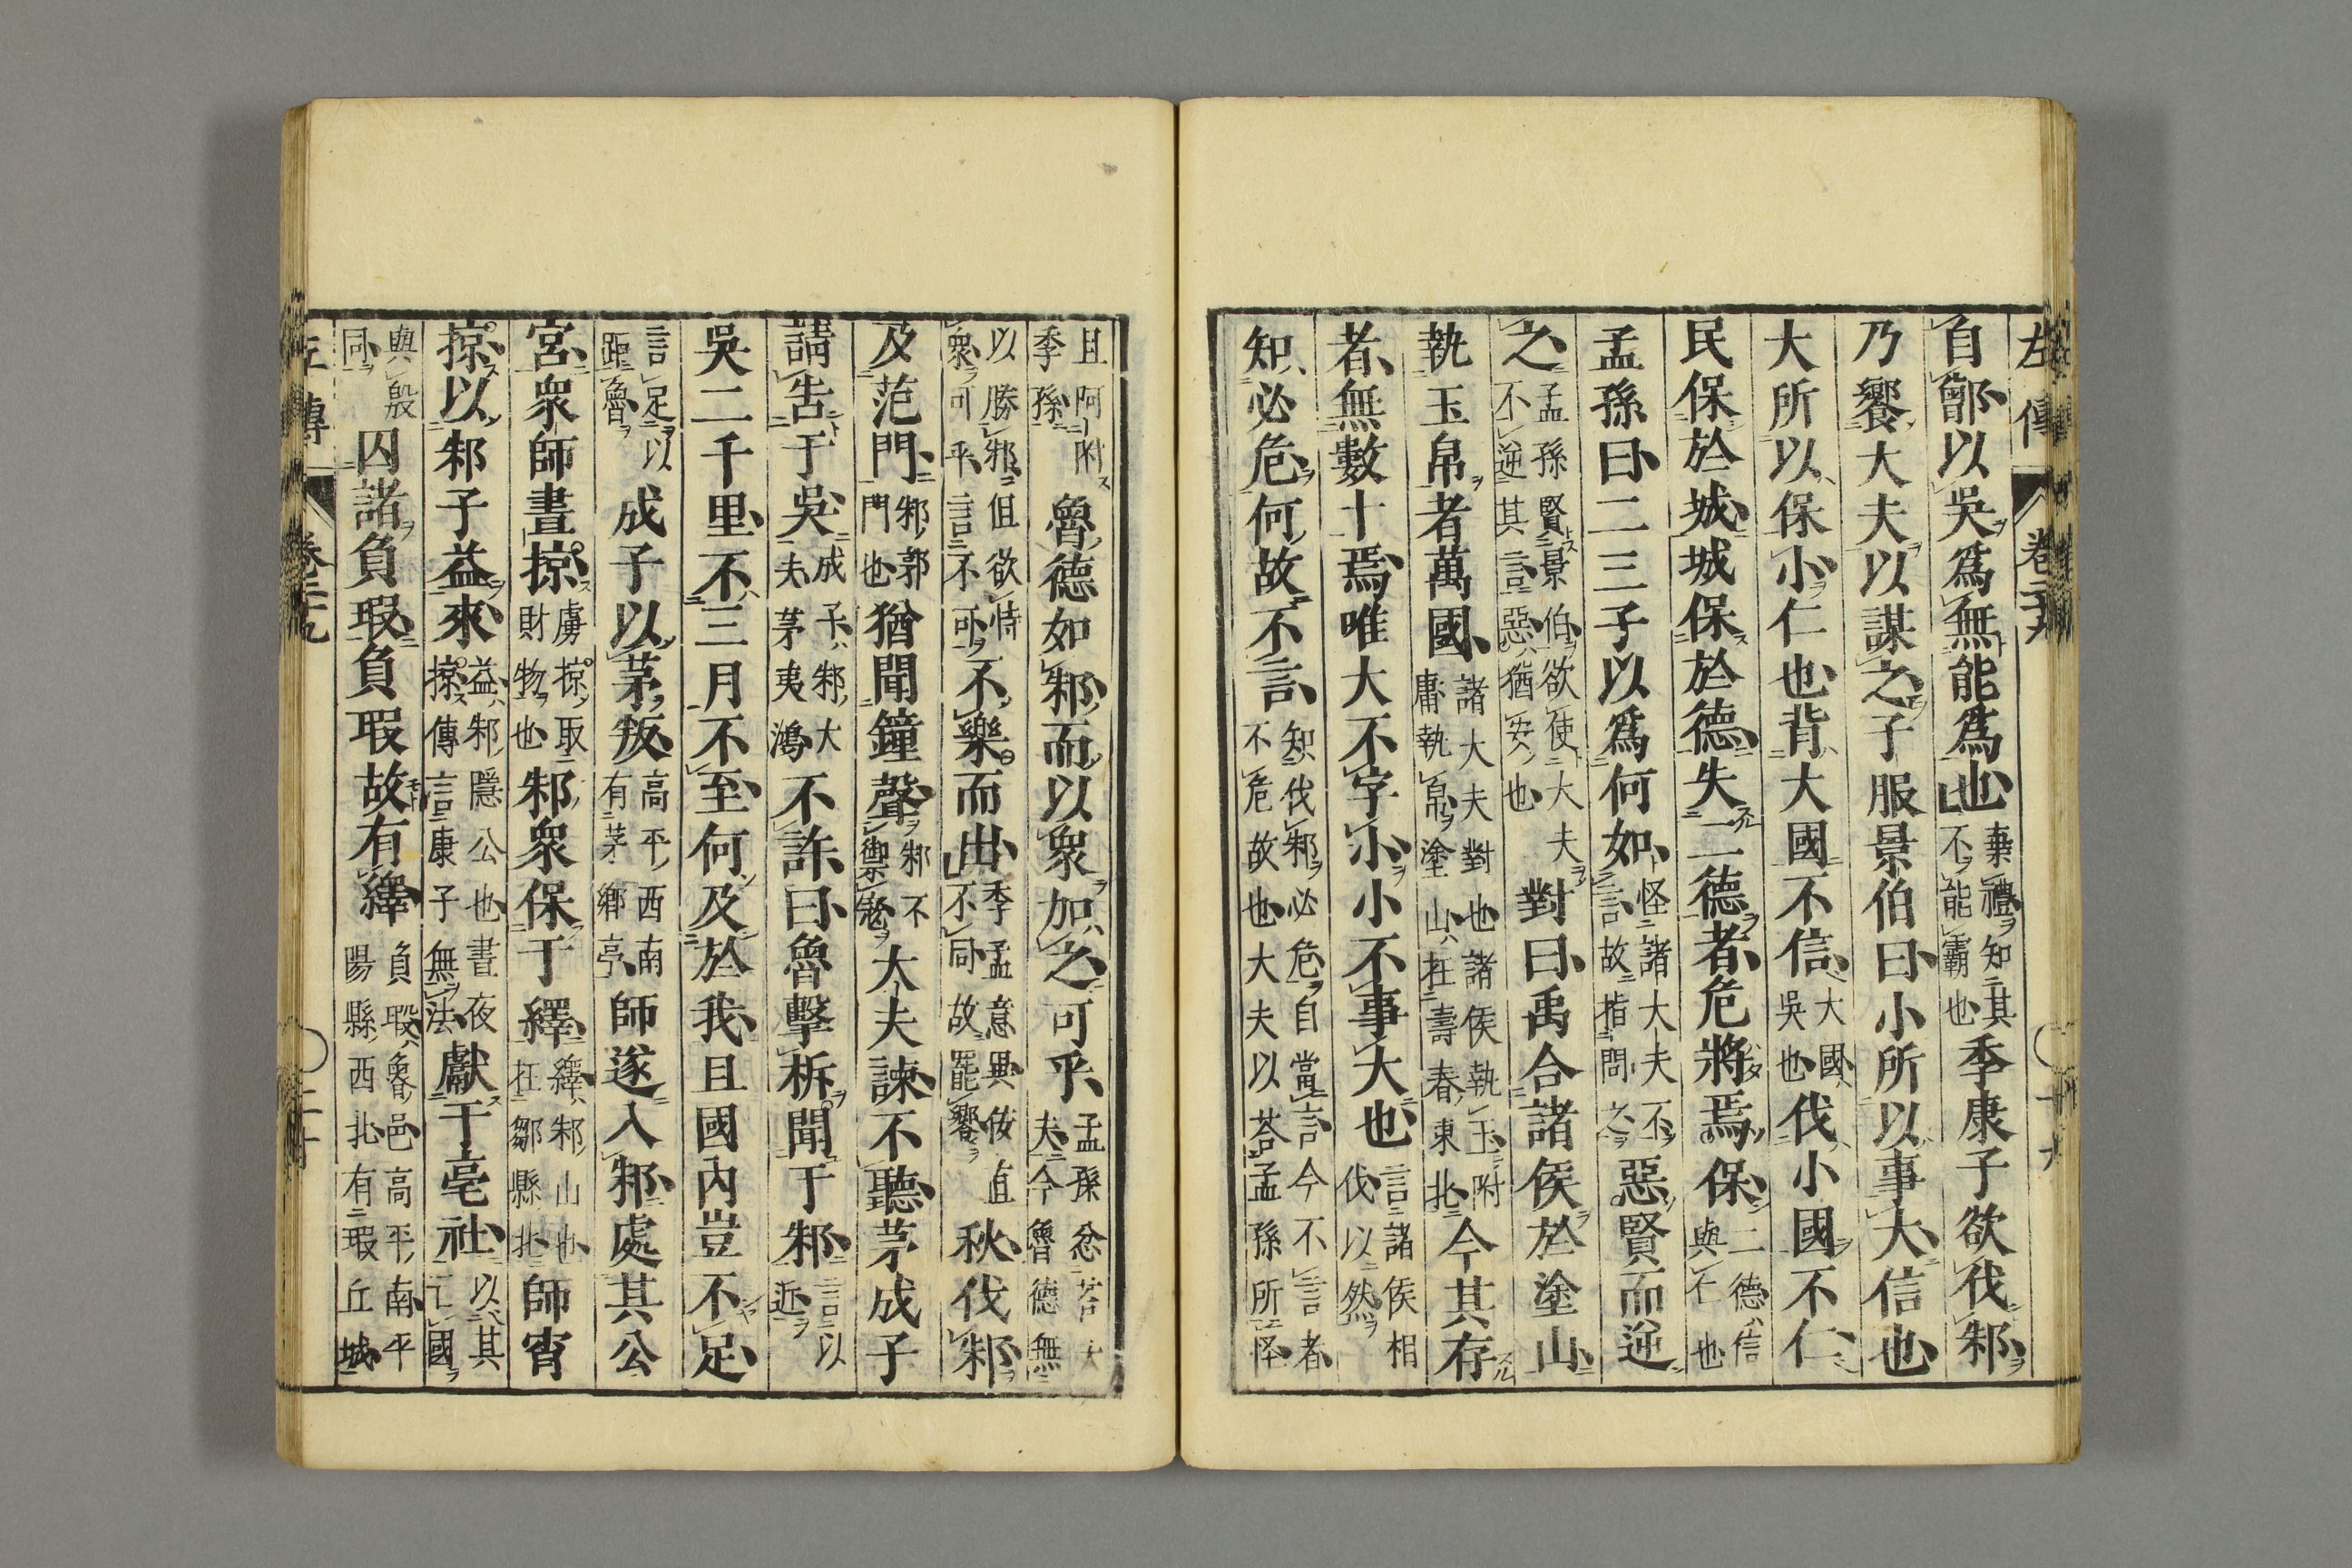 左傳 卷二十九 十九
自鄫以吳爲無能爲也棄禮知其不能霸也季康子欲伐邾
乃饗大夫以謀之子服景伯曰小所以事大信也
大所以保小仁也背大國不信大國吳也伐小國不仁
民保於城城保於德失二德者危將焉保二德信與仁也
孟孫曰二三子以爲何如怪諸大夫不言故指問之惡賢而逆
之孟孫賢景伯欲使大夫不逆其言惡猶安也對曰禹合諸侯於塗山
執玉帛者萬國諸大夫對也諸侯執玉附庸執帛塗山在壽春東北今其存
者無數十焉唯大不字小小不事大也言諸侯相伐以然
知必危何故不言知伐邾必危自當言今不言者不危故也大夫以荅孟孫所怪
且阿附季孫魯德如邾而以衆加之可乎孟孫忿荅大夫今魯德無
以勝邾但欲恃衆可乎言不可不樂而出季孟意異佞直不同故罷饗秋伐邾
及范門邾郭門也猶聞鐘聲邾不禦寇大夫諫不聽茅成子
請告于吳成子邾大夫茅夷鴻不許曰魯擊柝聞于邾言以近
吳二千里不三月不至何及於我且國內豈不足
言足以距魯成子以茅叛高平西南有茅鄉亭師遂入邾處其公
宮衆師晝掠虜掠取財物也邾衆保于繹繹邾山也在鄒縣北師宵
掠以邾子益來益邾隱公也晝夜掠傳言康子無法獻于亳社以其亡國
與殷同囚諸負瑕負瑕故有繹負瑕魯邑高平南平陽縣西北有瑕丘城
左傳 卷二十九 二十